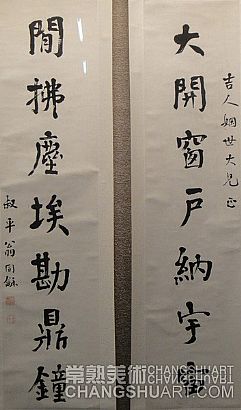 吉人姻世大兄正
大開窗戶納宇宙
閒拂塵埃勘鼎鐘
叔平翁同龢
常熟美術 CHANGSHUART
CHANGSHUART.COM